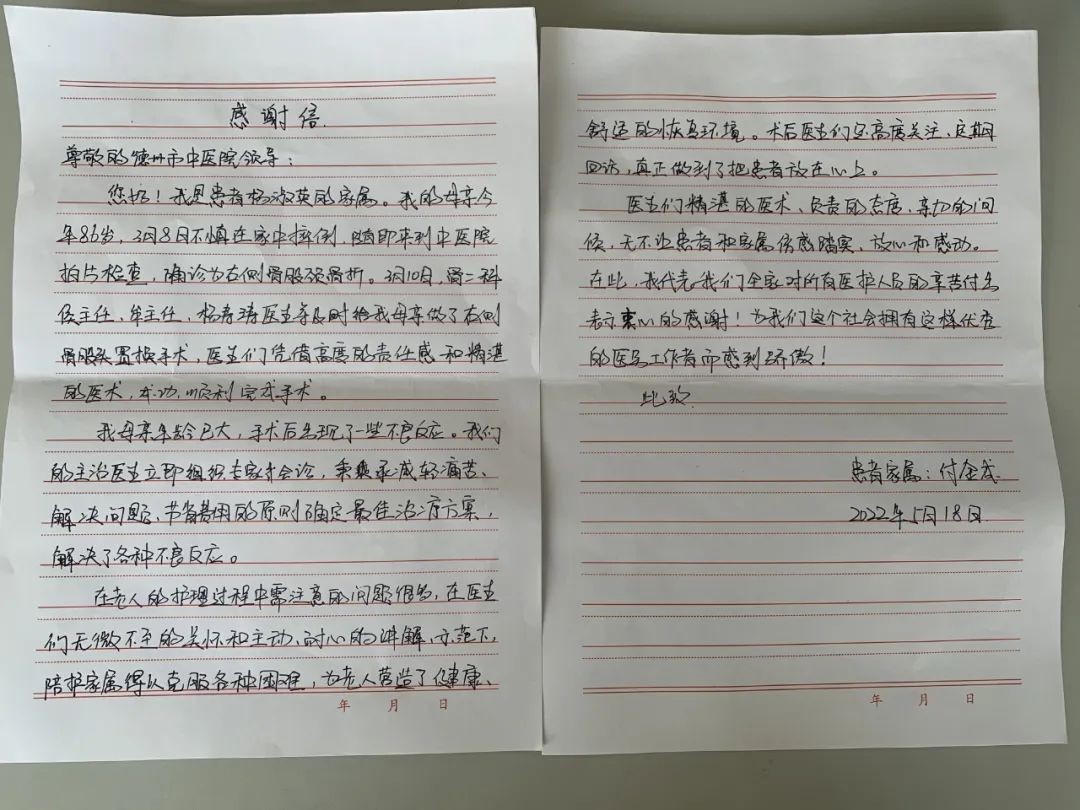 感谢信
尊敬的德州市中医院领导：
您好！我是患者杨淑英的家属。我的母亲今
年86岁，3月8日不慎在家中摔倒，随即来到中医院
拍片检查，确诊为右侧骨股颈骨折。3月10日，骨二科
侯主任、牟主任、杨寿涛医生等及时给我母亲做了右侧
骨股头置换手术，医生们凭借高度的责任感和精湛
的医术，成功、顺利完成手术。
我母亲年龄已大，手术后出现了一些不良反应。我们
的主治医生立即组织专家会论，秉承减轻痛苦、
解决问题、节省费用的原则确定最佳治疗方案，
解决了各种不良反应。
在老人的护理过程中需注意的问题很多，在医生
们无微不至的关怀和主动、耐心的讲解、示范下，
陪护家属得以克服各种困难，为老人营造了健康、
年 月 日
舒适的恢复环境。术后医生们还高度关注、定期
回访，真正做到了把患者放在心上。
医生们精湛的医术、负责的态度、亲切的问
候，无不让患者和家属倍感踏实、放心和感动。
在此，我代表我们全家对所有医护人员的辛苦付出
表示衷心的感谢！为我们这个社会拥有这样优秀
的医务工作者而感到骄傲！
此致
患者家属：付金成
2022年5月18日
年 月 日